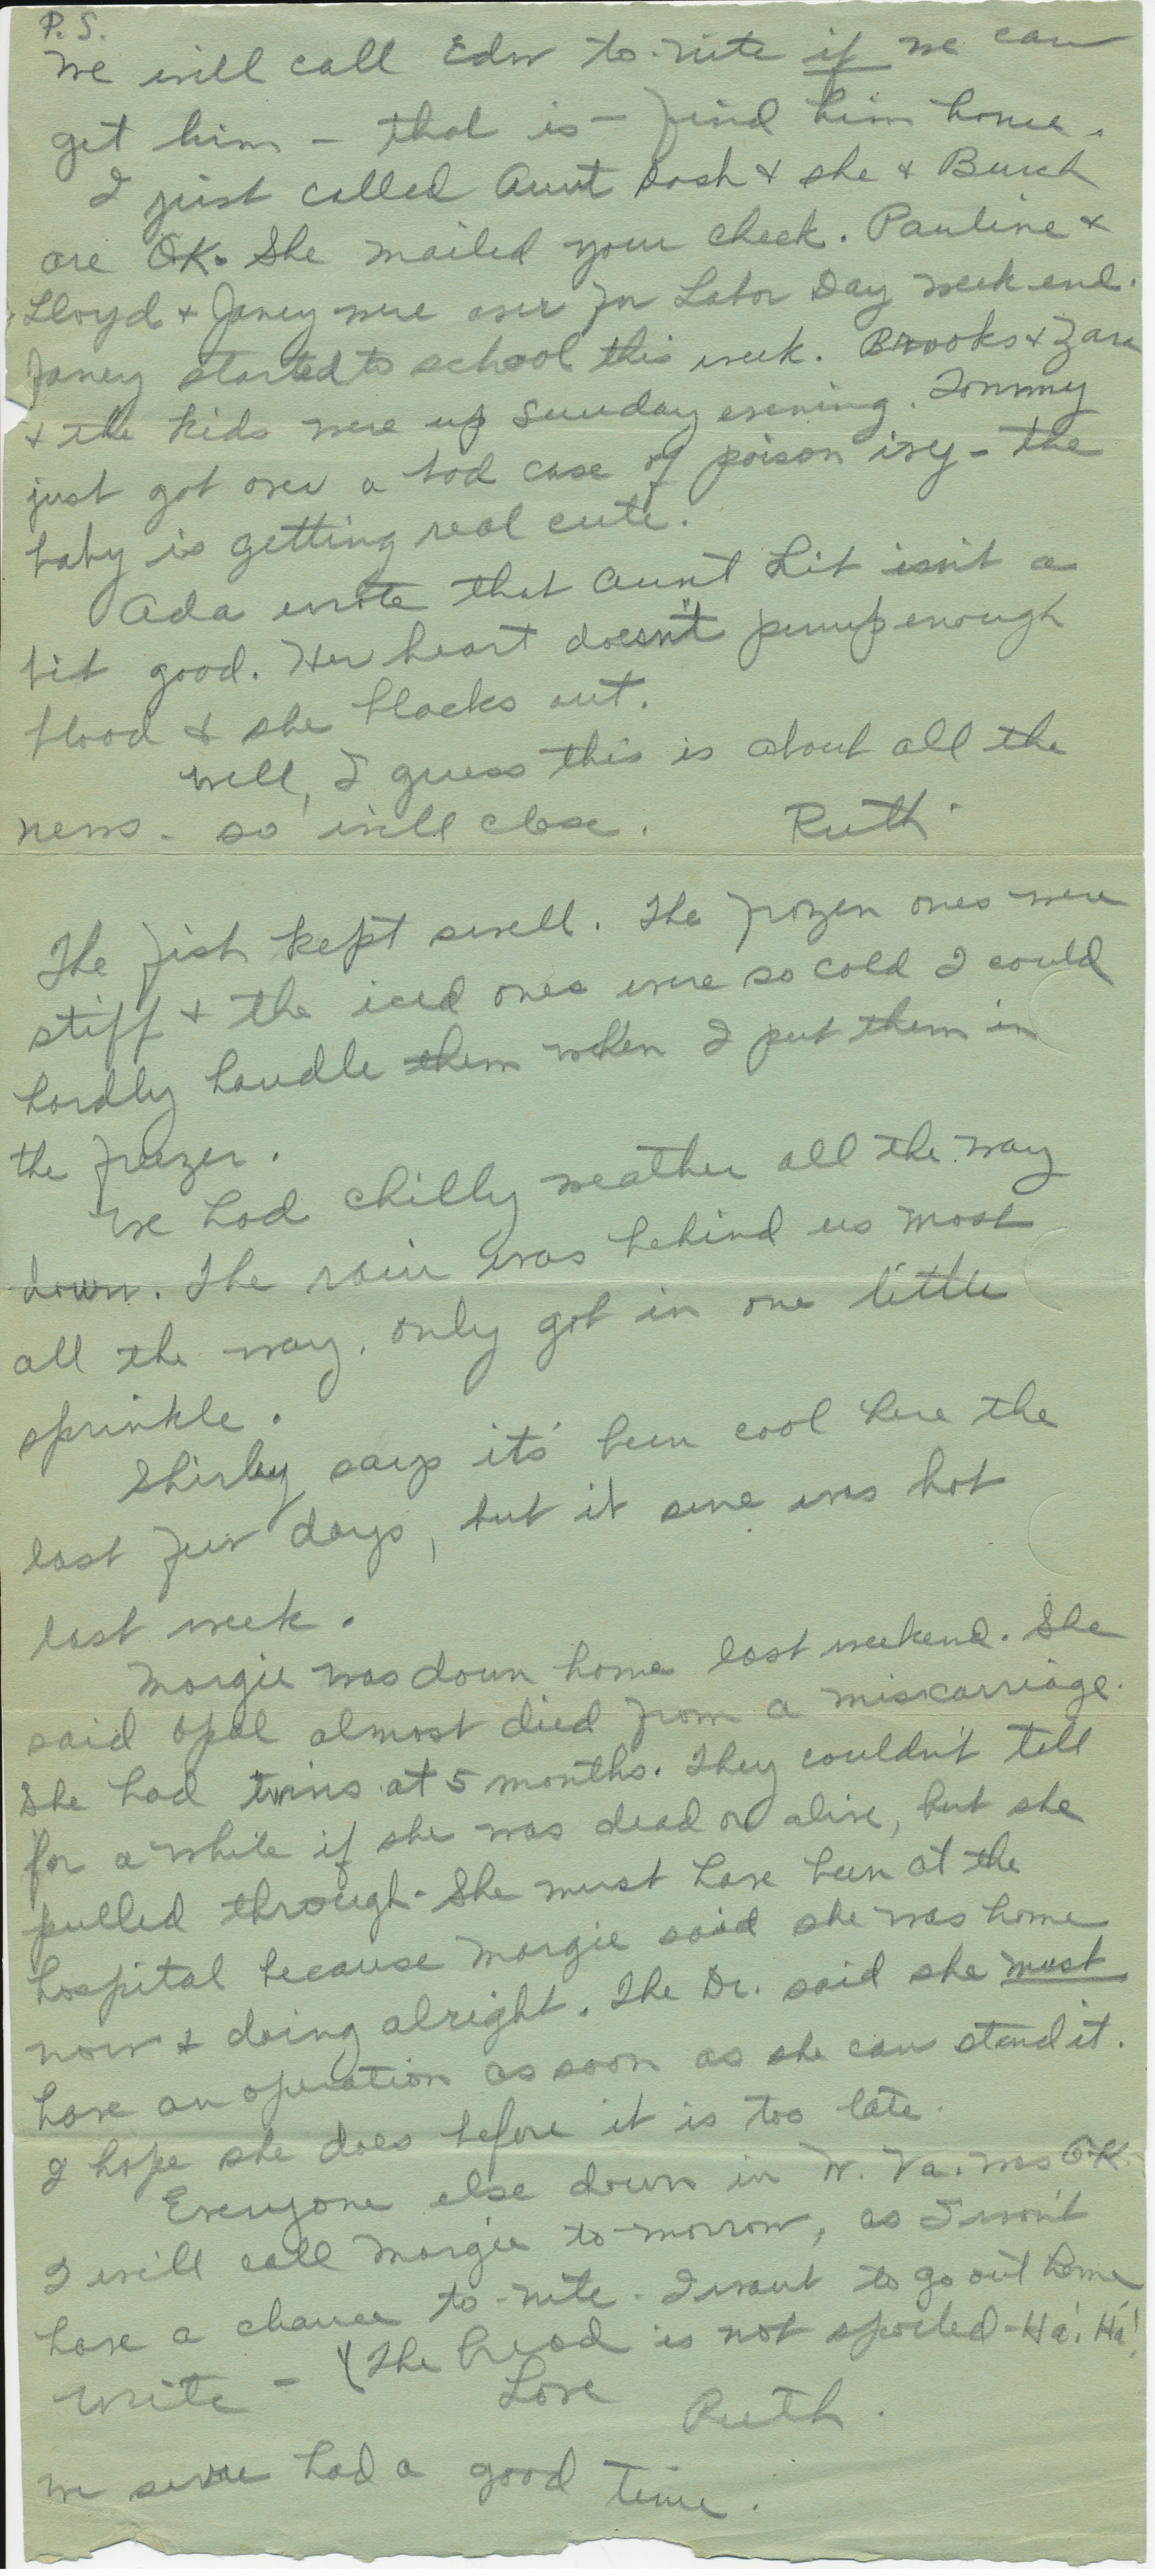 P.S.
We will call Edw to-nite if we can
get him - that is - find him home.
I just called Aunt Dosh & she & Burch
are OK. She mailed your check. Pauline &
Lloyd & Janey were over for Labor Day week end.
Janey started to school this week. Brooks & Zara
& the kids were up Sunday evening. Tommy
just got over a bad case of poison ivy - the
baby is getting real cute.
Ada wrote that Aunt Lit isn't a
bit good. Her heart doesn't pump enough
blood & she blacks out.
Well, I guess this is about all the
news - so will close. Ruth
The fish kept swell. The frozen ones were
stiff & the iced ones were so cold I could
hardly handle them when I put them in
the freezer.
We had chilly weather all the way
down. The rain was behind us most
all the way, only got in one little
sprinkle.
Shirley says its been cool here the
last few days, but it sure was hot
last week.
Margie was down home last weekend. She
said Opal almost died from a miscarriage.
She had twins at 5 months. They couldn't tell
for a while if she was dead or alive, but she
pulled through. She must have been at the
hospital because Margie said she was home
now & doing alright. The Dr. said she must
have an operation as soon as she can stand it.
I hope she does before it is too late.
Everyone else down in W. Va. was O.K.
I will call Margie to-morrow, as I won't
have a chance to-nite - I want to go out home
Write - (The bread is not spoiled - Ha! Ha!
Love
Ruth.
We sure had a good time.